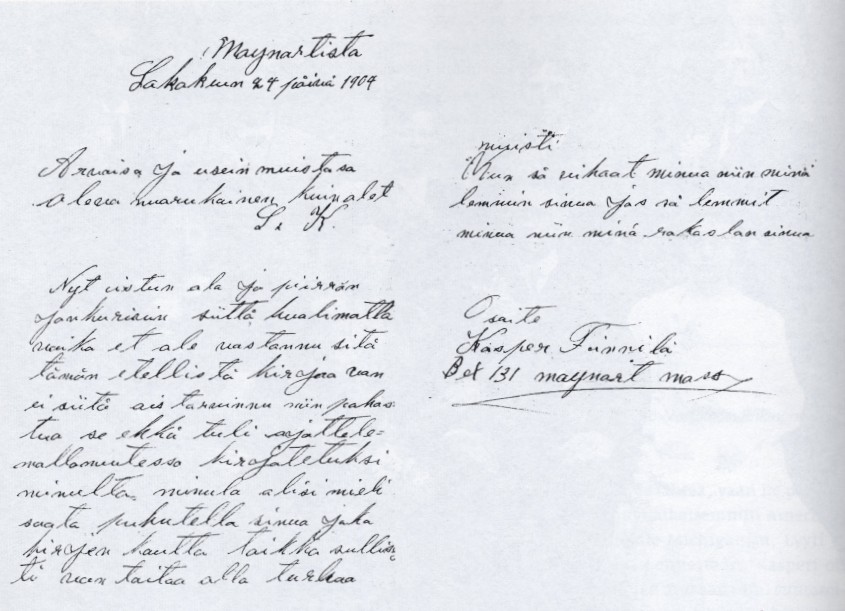 Maynartista
Lokakuun 24 päivä 1904
Arvaisa ja usein muistosa
oleva nuorukainen kuin olet
S. K.
Nyt istun ala ja piirrän
jonkurivin siittä huolimatta
vaika et ole vastannu sitä
tämän etellistä kirjaa van
ei siitä ois tarvinnu niin pahas
tua se ehkä tuli ajattele=
mattomutessa kirjotetuksi
minulta. minula olisi mieli
saata puhutella sinua joko
kirjen kautta taikka sullisa
ti van taitaa olla turhaa
muisti
kun sä vihaat minua niin minä
lemmin sinua jos sä lemmit
minua niin minä rakastan sinua
Osoite
Kasper Finnilä
Box 131 maynart mass